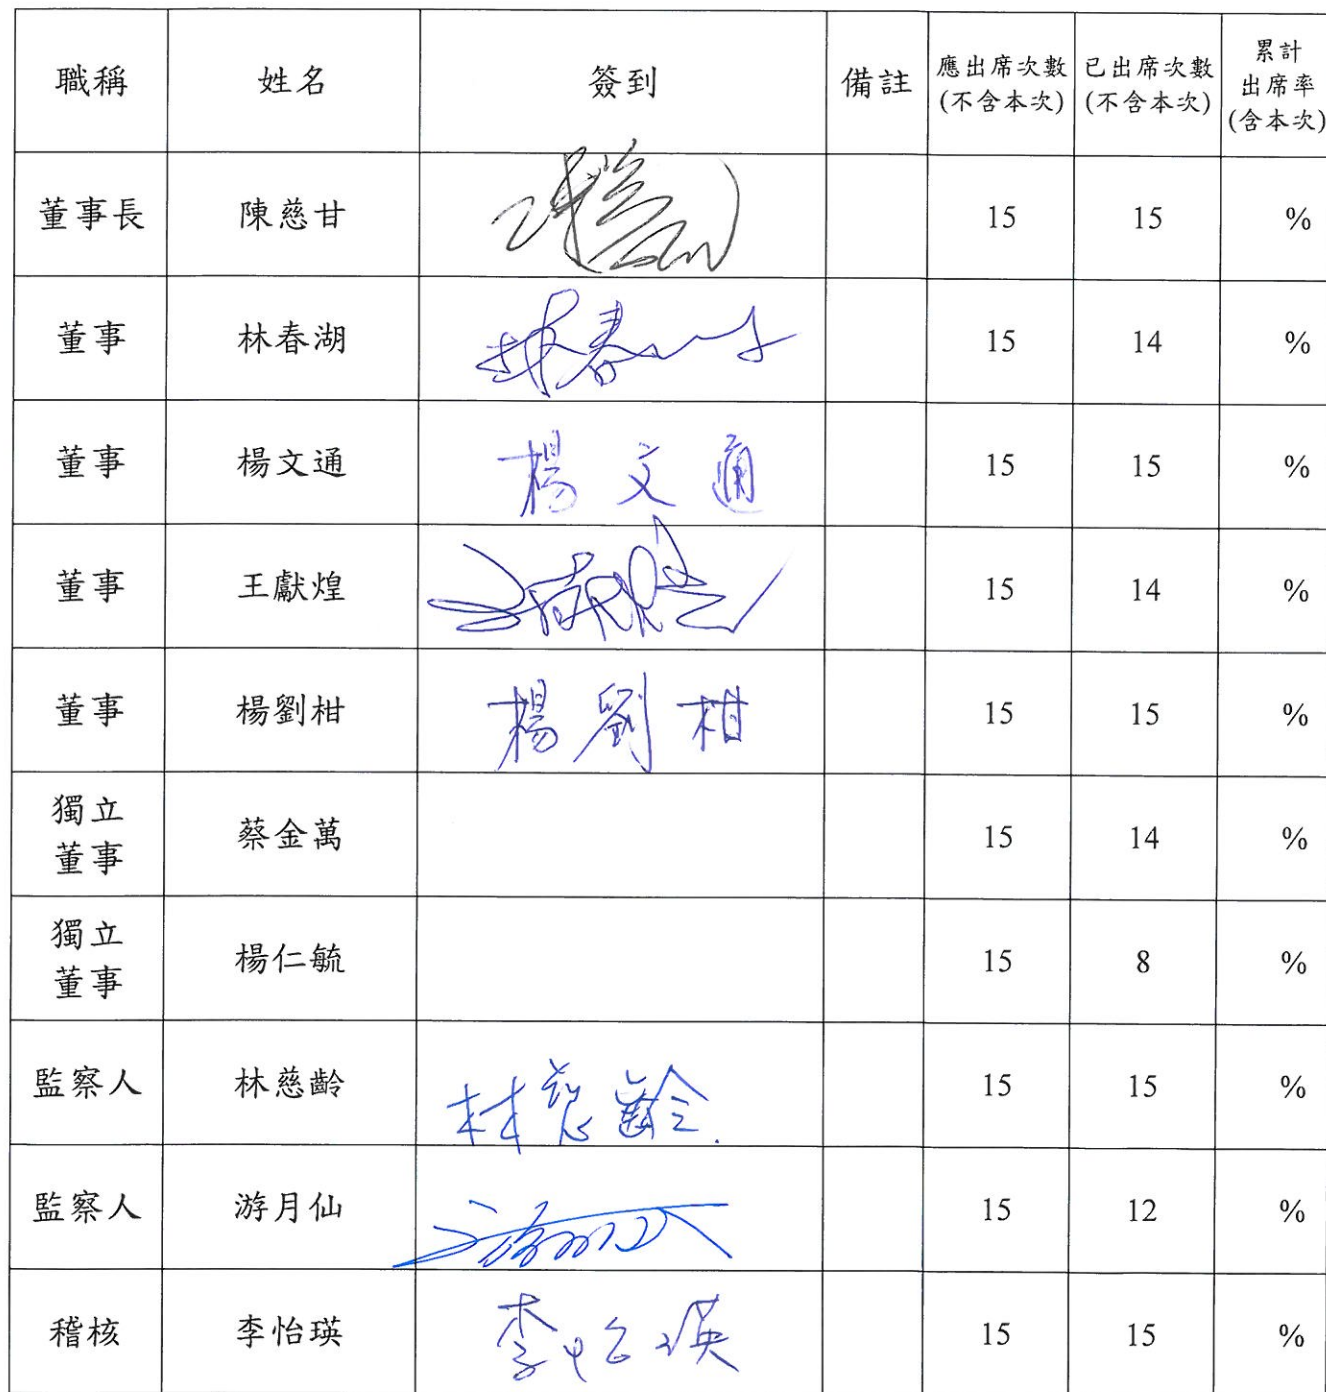 職稱 姓名 簽到 備註 應出席次數(不含本次) 已出席次數(不含本次) 累計出席率(含本次)
董事長 陳慈甘 15 15 %
董事 林春湖 林春湖 15 14 %
董事 楊文通 楊文通 15 15 %
董事 王獻煌 15 14 %
董事 楊劉柑 楊劉柑 15 15 %
獨立董事 蔡金萬 15 14 %
獨立董事 楊仁毓 15 8 %
監察人 林慈齡 林慈齡 15 15 %
監察人 游月仙 15 12 %
稽核 李怡瑛 李怡瑛 15 15 %